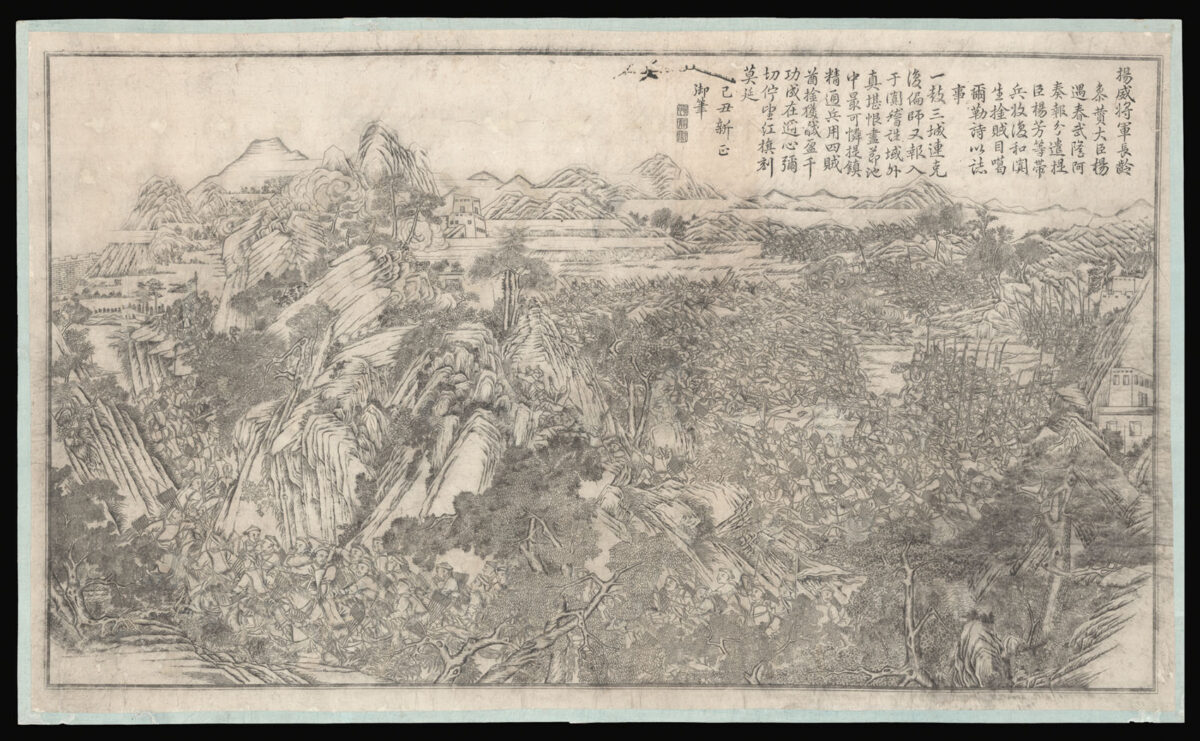 揚威將軍長齡
叅贊大臣楊
遇春武隆阿
奏報分遣提
臣楊芳等帶
兵收復和闐
生擒賊目噶
爾勒詩以誌
事
一鼓三城連克
後偏師又報入
于闐稽誅域外
真堪恨盡節池
中最可憐提鎮
精通兵用四賊
酋擒獲馘盈千
功成在邇心彌
切佇望紅旗刻
莫延
己丑新正
御筆